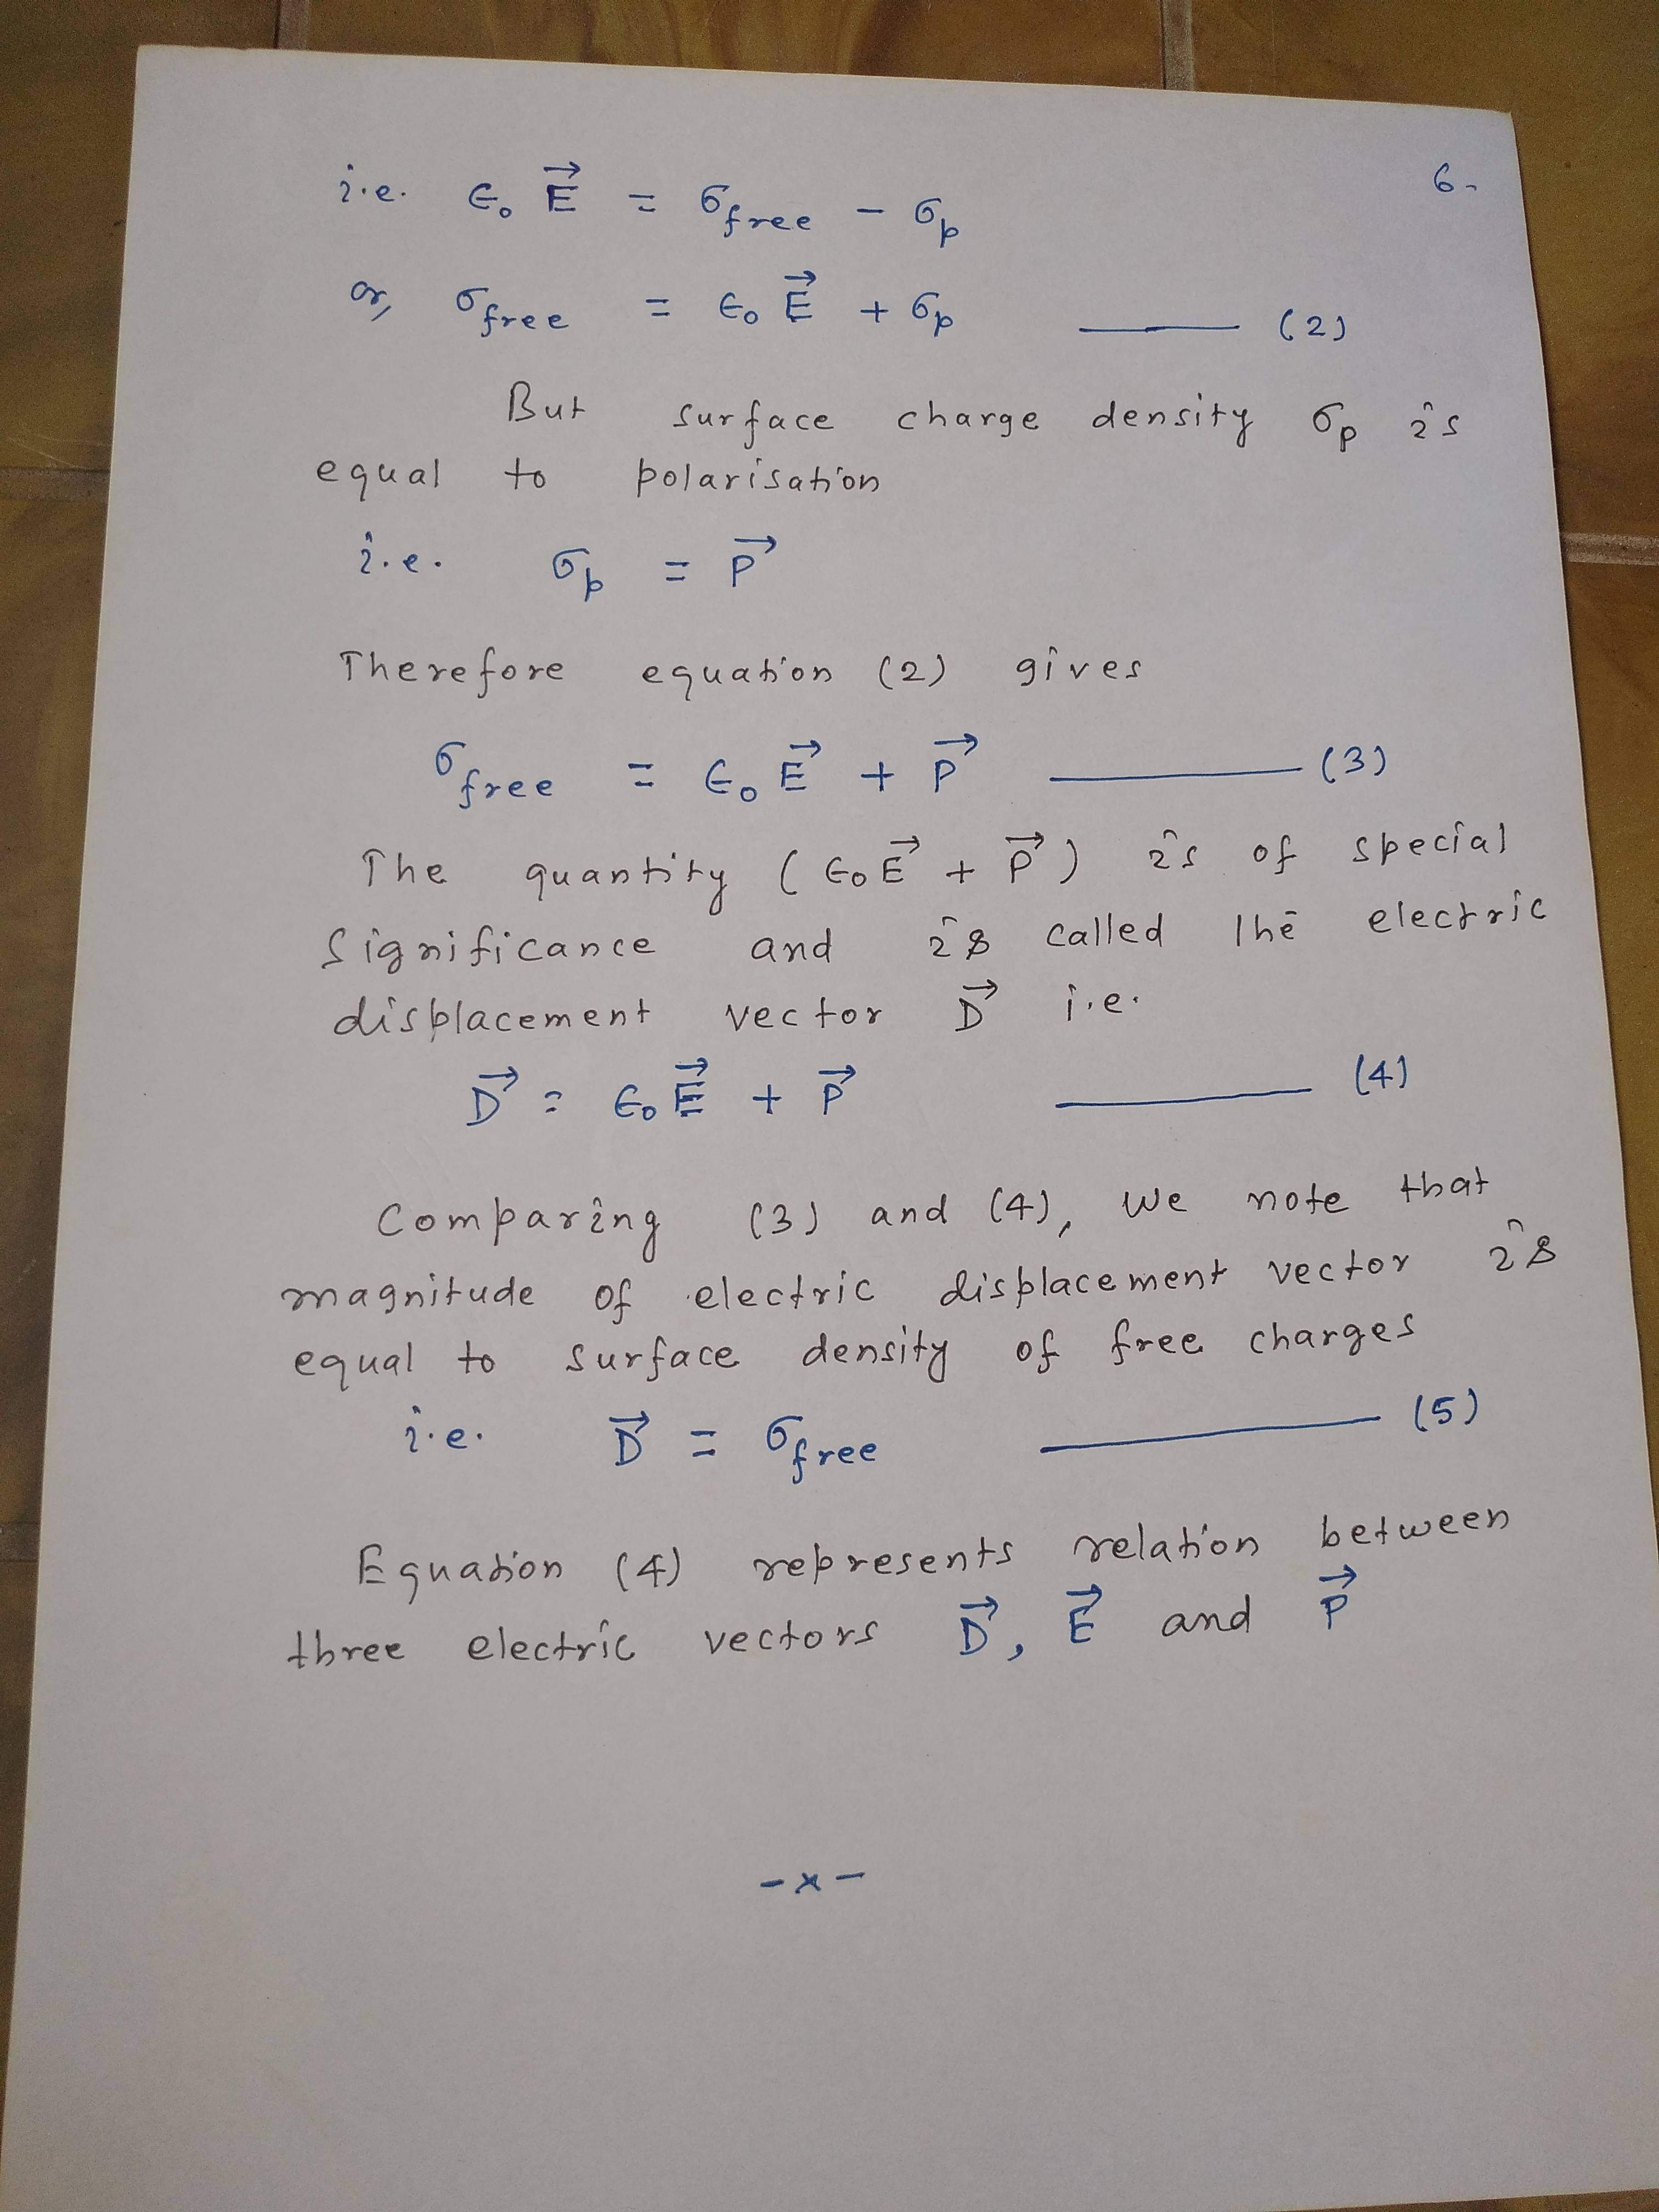 6.
i.e. ϵ₀ E⃗ = σfree − σp
or, σfree = ϵ₀ E⃗ + σp —— (2)
But surface charge density σp is
equal to polarisation
i.e. σp = P⃗
Therefore equation (2) gives
σfree = ϵ₀ E⃗ + P⃗ —— (3)
The quantity (ϵ₀E⃗ + P⃗) is of special
significance and is called the electric
displacement vector D⃗ i.e.
D⃗ = ϵ₀ E⃗ + P⃗ —— (4)
Comparing (3) and (4), we note that
magnitude of electric displacement vector is
equal to surface density of free charges
i.e. D⃗ = σfree —— (5)
Equation (4) represents relation between
three electric vectors D⃗, E⃗ and P⃗
-x-